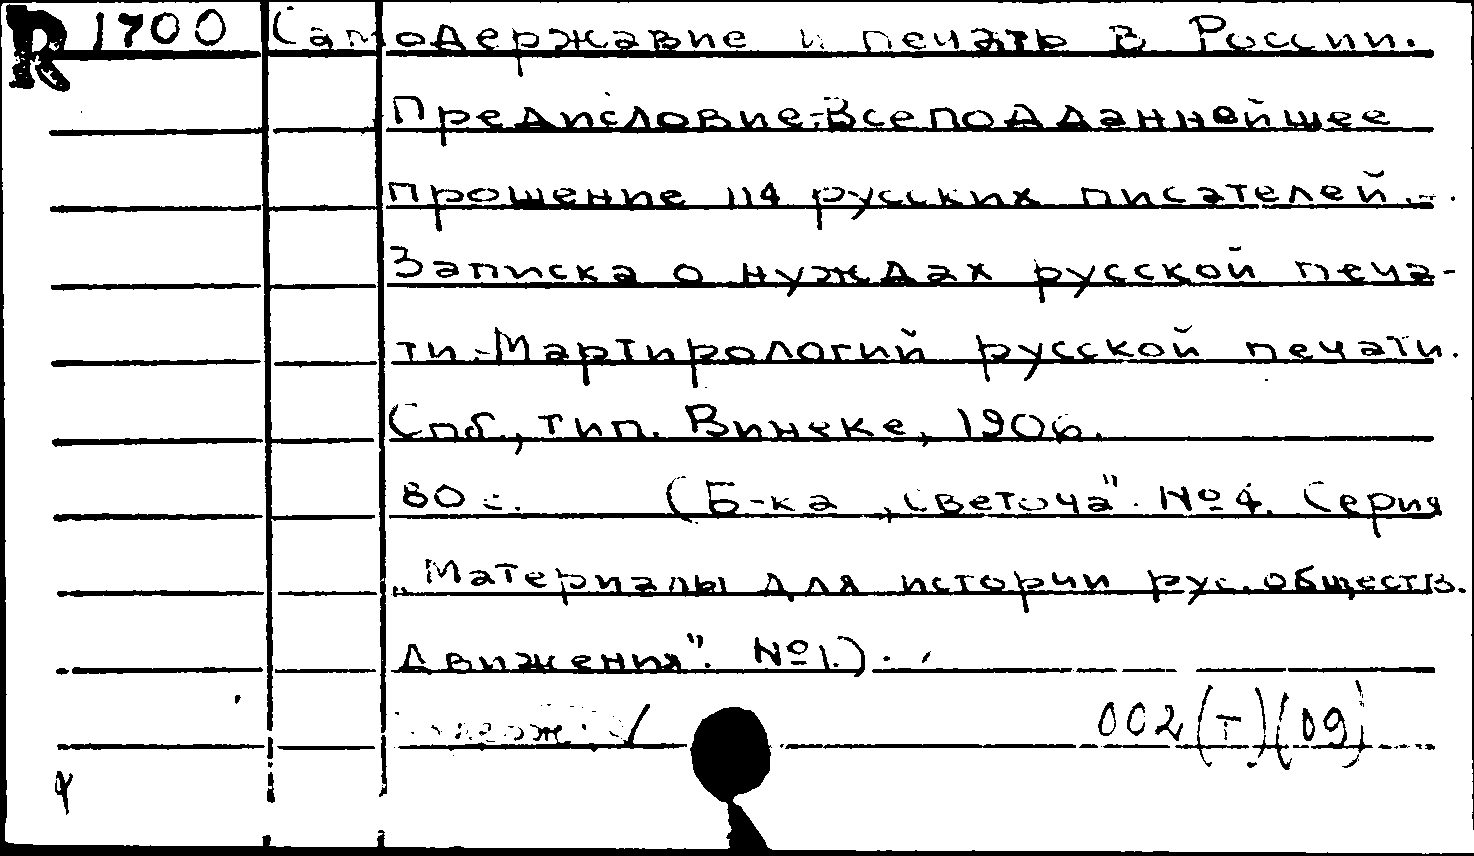 R 1700 Самодержавие и печать в России.
Предисловие.-Всеподданнейшее
прошение 114 русских писателей.-
Записка о нуждах русской печа-
ти.-Мартирологий русской печати.
Спб., тип. Винеке, 1906.
80 с. (Б-ка „Светоча". №4. Серия
„Материалы для истории рус. обществ.
движения". №1.).
002(Т)(09)